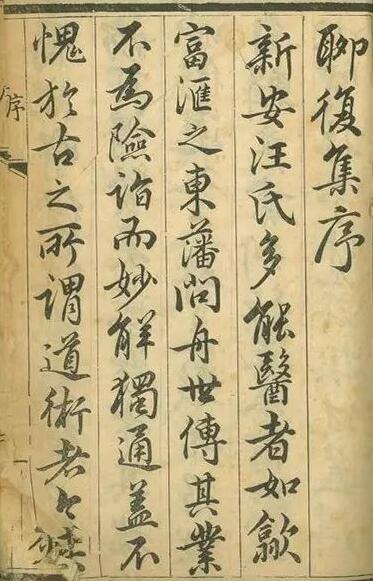 聊復集序
新安汪氏多能醫者如歙
富匯之東藩問舟世傳其業
不爲險詣而妙解獨通蓋不
愧於古之所謂道術者
序